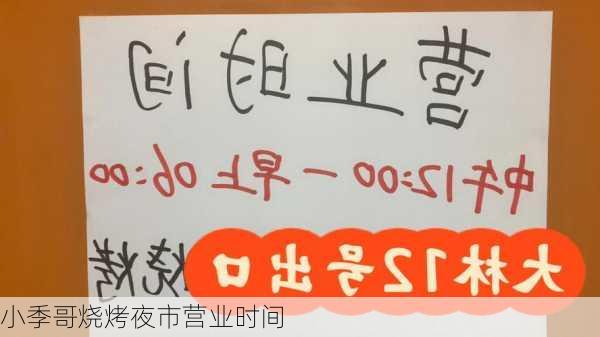 营业时间
中午12:00一早上06:00
烧烤
大林12号出口
小季哥烧烤夜市营业时间